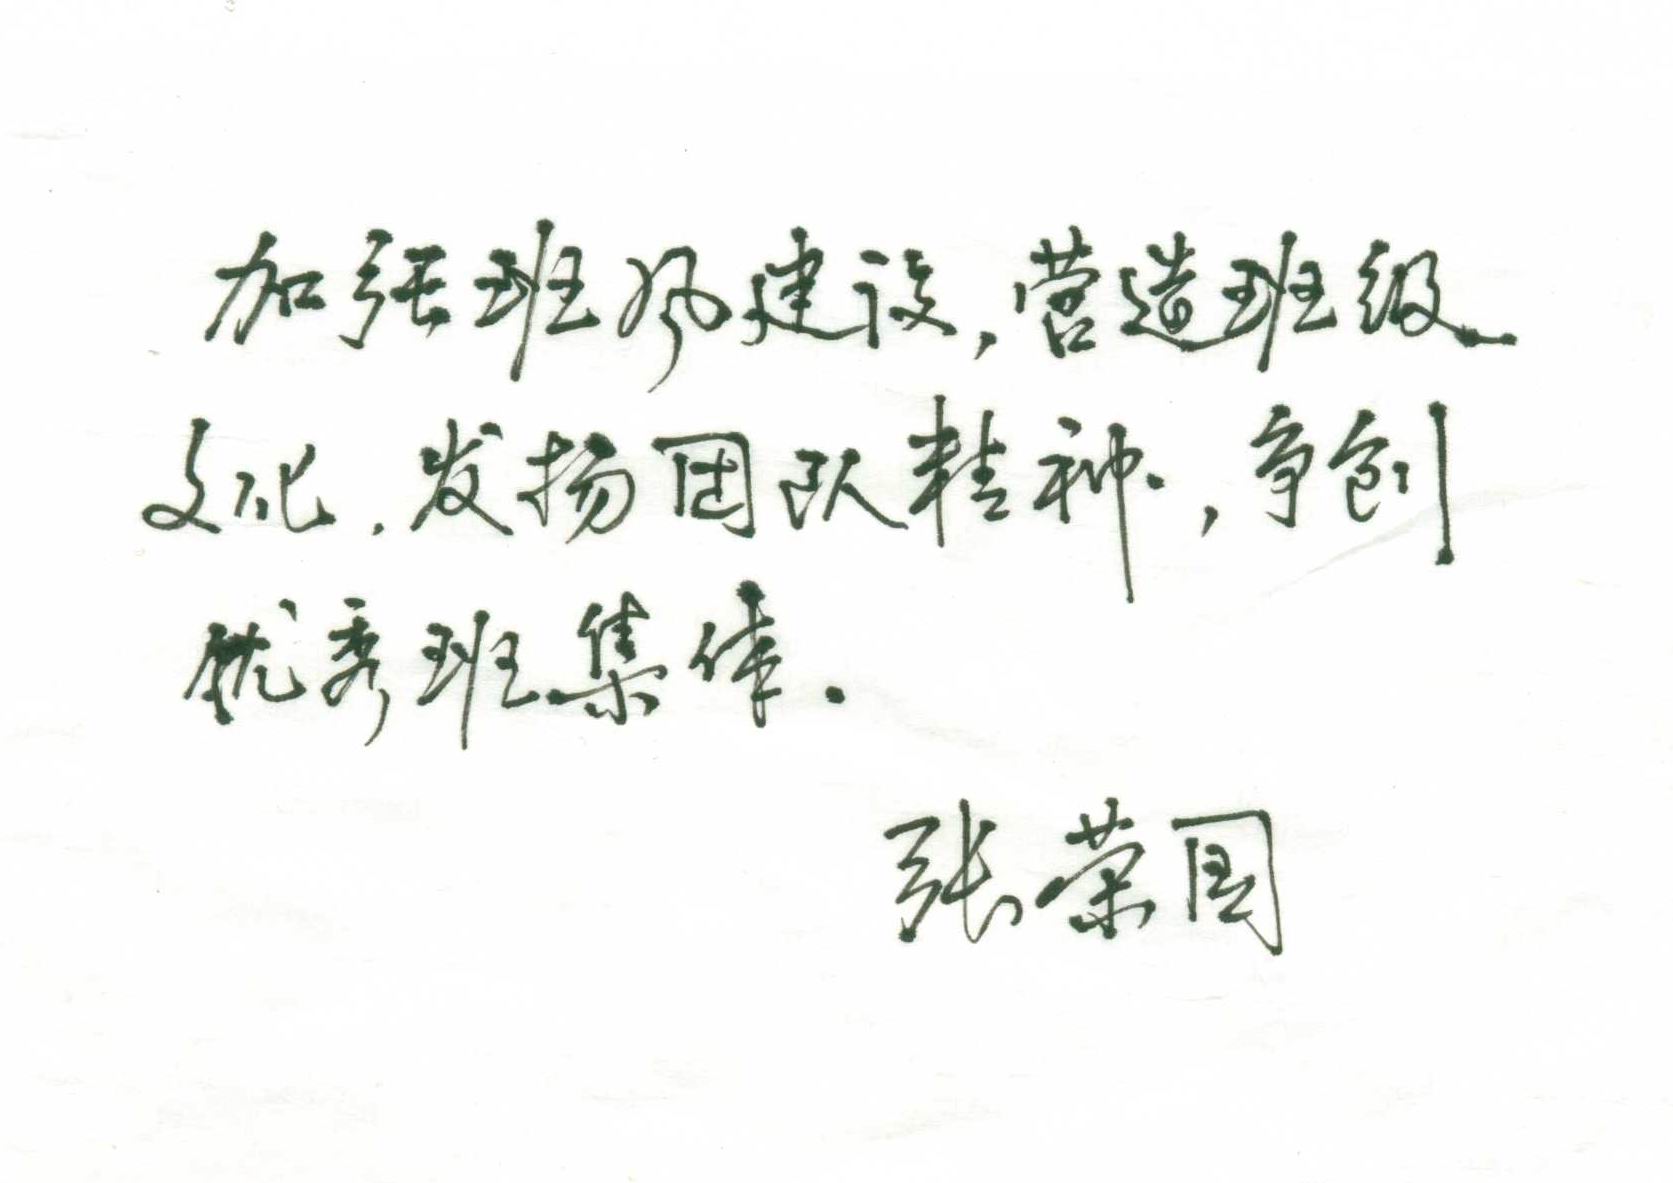 加强班风建设,营造班级
文化,发扬团队精神,争创
优秀班集体.
张荣国